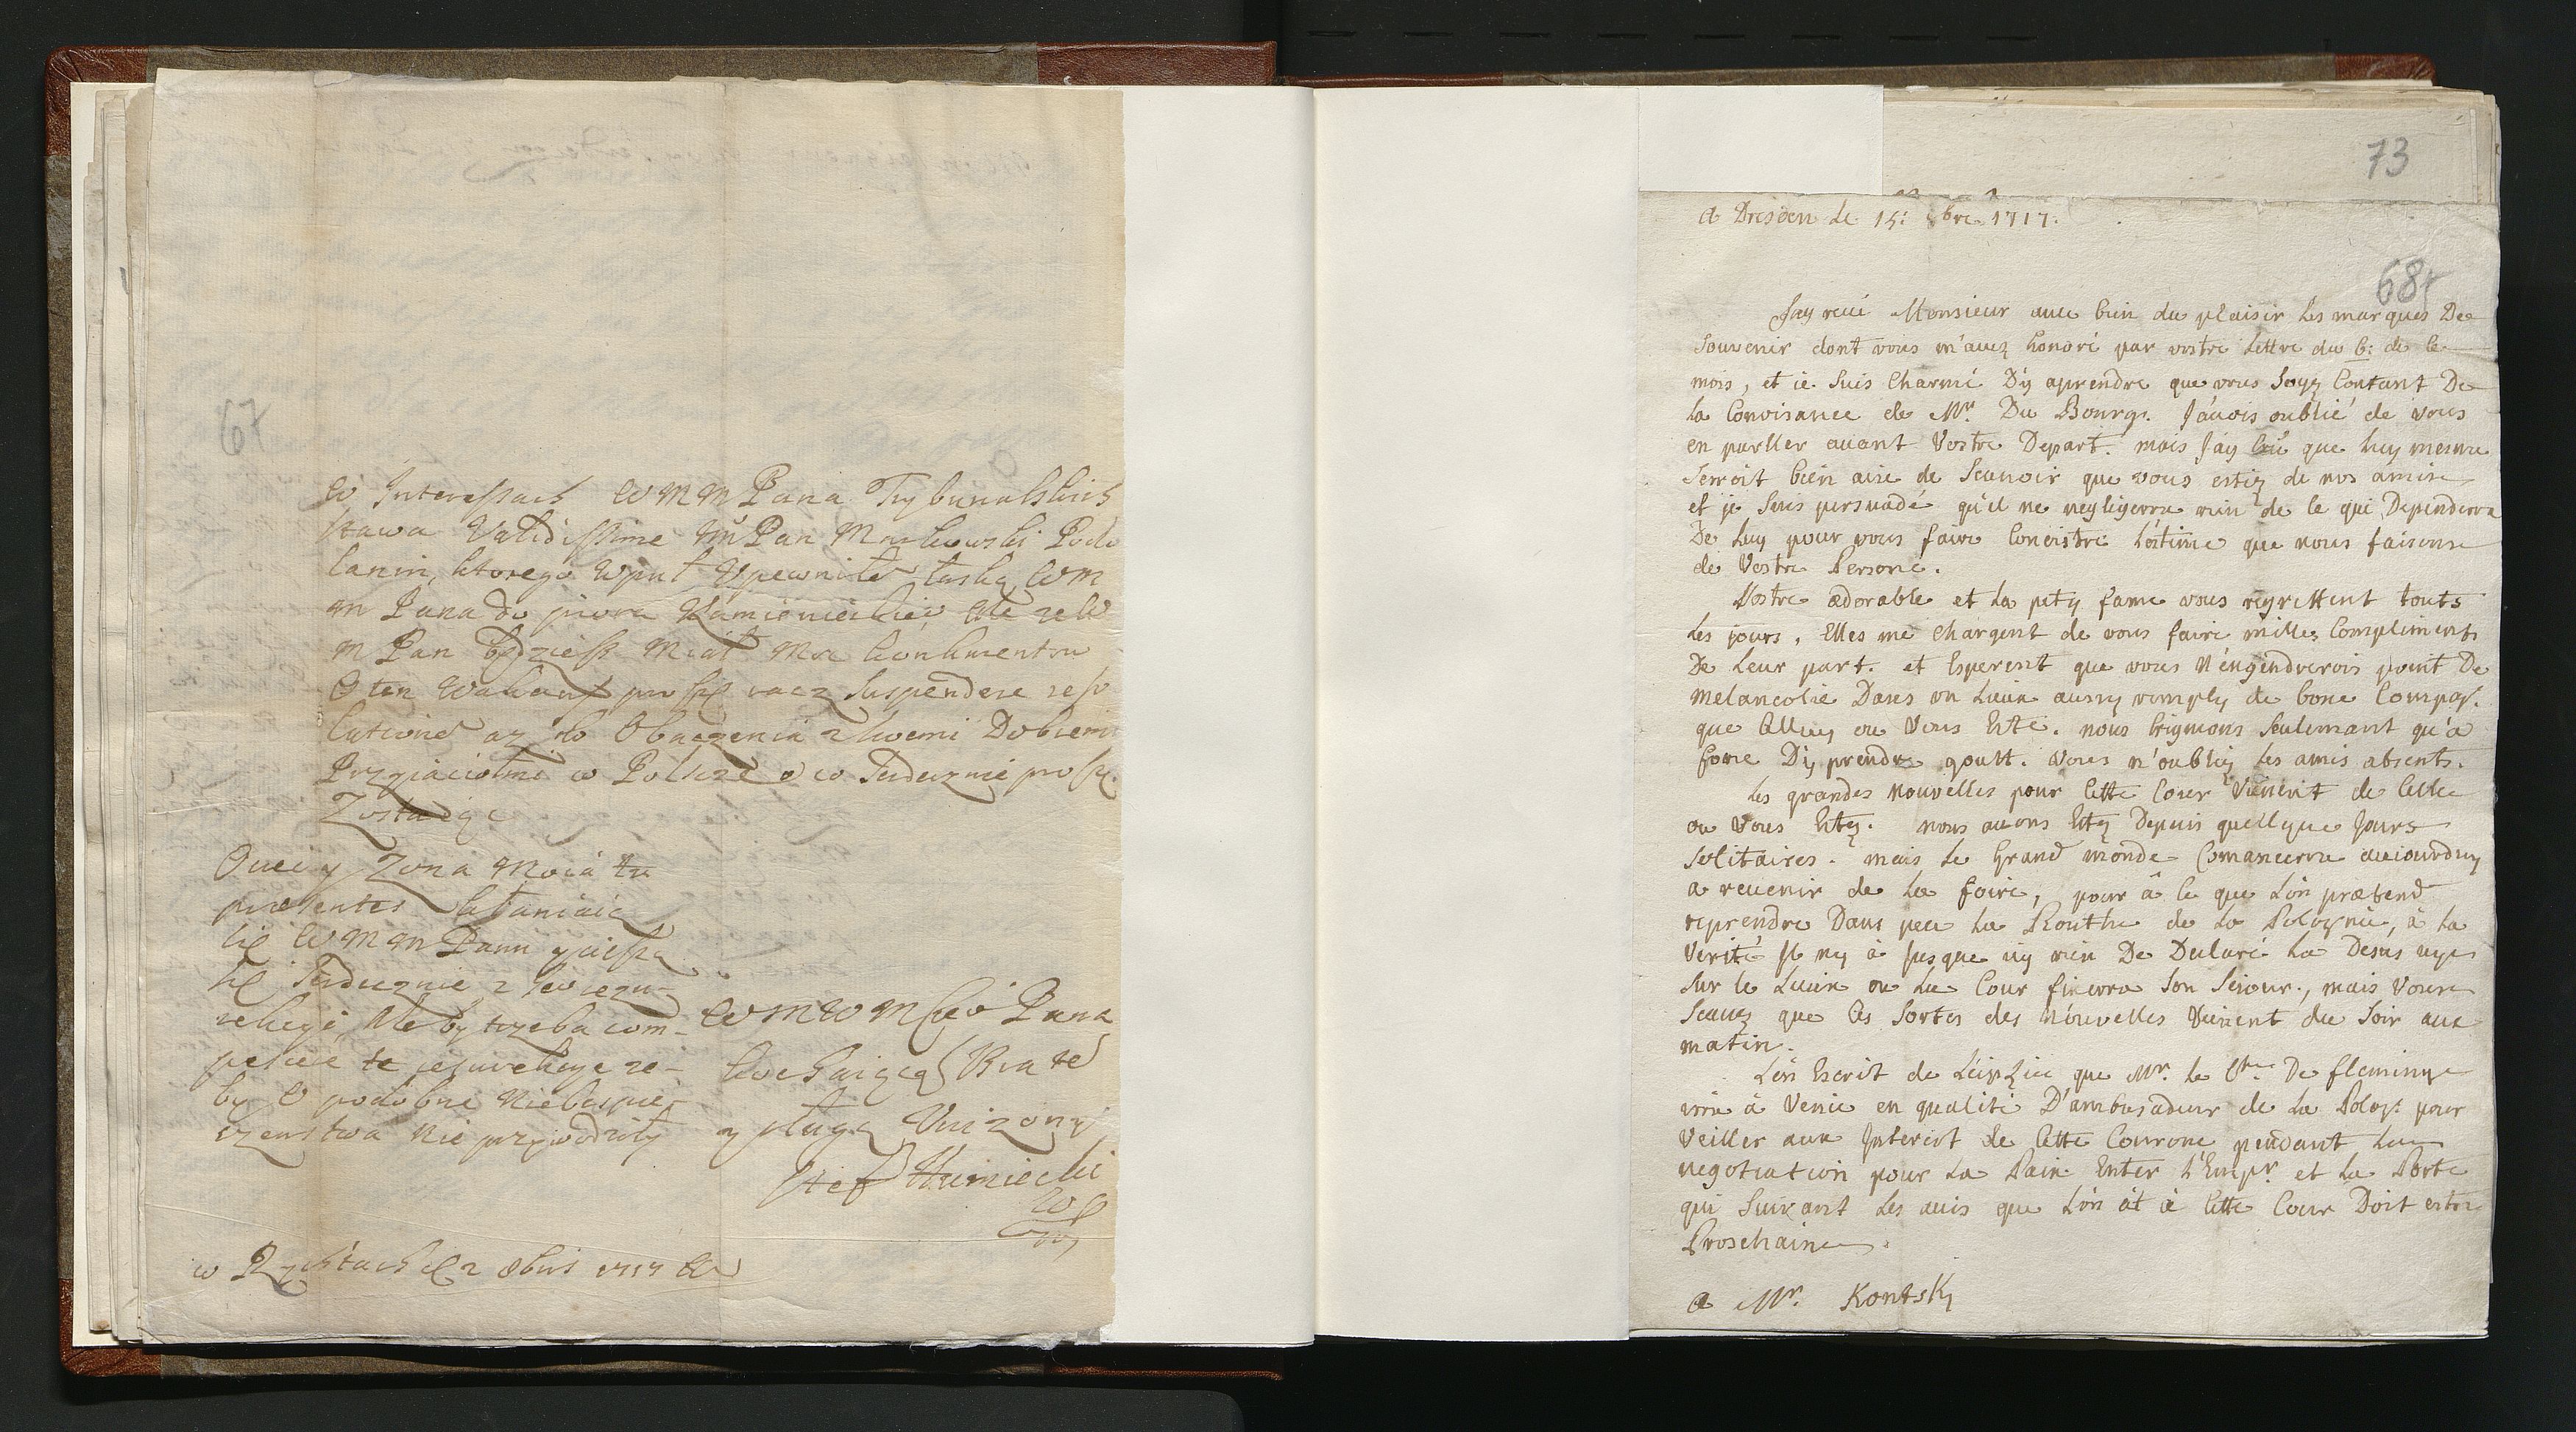 67
w Interessach W M M Pana Trybunalskich
stawa Validissime Mr Pan Markowski Podo
lanin, ktorego wprut Vpewniłem łaską W M
M Pana do piora Kamienieckiego Ale ze W
M Pan będziesz miał
O ten Wakans proszę racz suspendere reso
lutionem az do Obaczenia z swemi Dobremi
Przyiaciołmi w Polszcze o co Serdecznie proszę
Zostaiąc
Ociec y Zona Moia tu
præsentes kłaniaią
się W M M Panu y cieszą
się Serdecznie z
rekcyi, Ale by trzeba com-
pescere te resurrekcye ze-
by W podobne Niebespie-
czenstwa Nie przywodziły
W M W M Pana
kochaiący Brat
y sługa Unizony
Stef Humiecki
W P
w Rychtach d 2 8bris 1717
73
a Dresden le 15: bre 1717.
68
Jay reçu Monsieur avec bien du plaisir les marques De
Souvenir dont vous m'avez honoré par vostre lettre du 6: de ce
mois, et ie suis Charmé D'y aprendre que vous soyez Contant De
la Conoisance de Mr. Du Bourg. J'avois oublié de vous
en parller avant Vostre Depart. mais Jay cru que luy mesme
Serroit bien aise de Scavoir que vous estiez de nos amis
et je suis persuadé qu'il ne negligerra rien de ce qui Dependerra
De luy pour vous faire Conoistre l'estime que nous faisons
de Vostre Persone.
Vostre adorable et la pety fame vous regrettent touts
les jours, Elles me Chargent de vous faire milles Compliments
De leur part. et Esperent que vous N'engendrerois point De
melancolie Dans un lieux aussy remply de bone Compag.
que Celluy ou Vous Esté. nous Creignons Seulemant qu'a
force D'y prendre goutt. vous n'oubliez les amis absents.
les grandes Nouvelles pour Cette Cour Vienent de Celle
ou Vous Estez. nous avons Estez Depuis quellque Jours
Solitaires. mais le Grand monde Comancerra aujourduy
a revenir de la foire, pour â ce que l'on prætend
reprendre Dans peu la Routhe de la Pologne, à la
verité Il ny à Jusque icy rien De Declaré la Desus ny
Sur le Lieux ou la Cour fixerra Son Sejour, mais Vous
Scavez que Ces Sortes des Nouvelles Vienent du Soir aux
matin.
L'on Escrit de Leipzic que Mr. le Cte. De fleming
irra à Venie en qualité D'ambasadeur de la Polog. pour
Veiller aux Interest de Cette Courone pendant la
negotiation pour la Paix Enter l'Empr. et la Porte
qui Suivant les avis que l'on ât à Cette Cour Doit estre
Proschaine.
a Mr. Kontsky